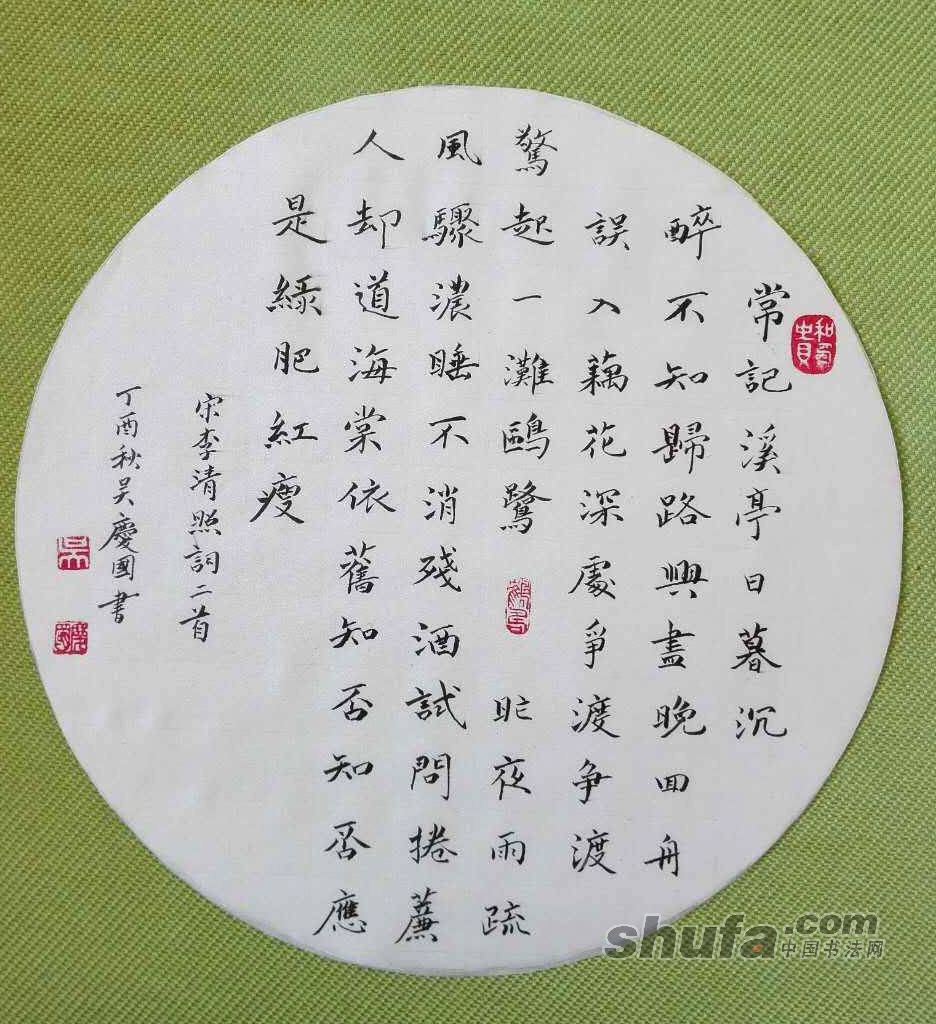 和為貴
常記溪亭日暮沉
醉不知歸路興盡晚囬舟
誤入藕花深處爭渡争渡
驚起一灘鷗鷺
昨夜雨疏
風驟濃睡不消殘酒試問捲簾
人却道海棠依舊知否知否應
是綠肥紅瘦
宋李清照詞二首
丁酉秋吴慶國書
吴
慶國
shufa.com
中国书法网